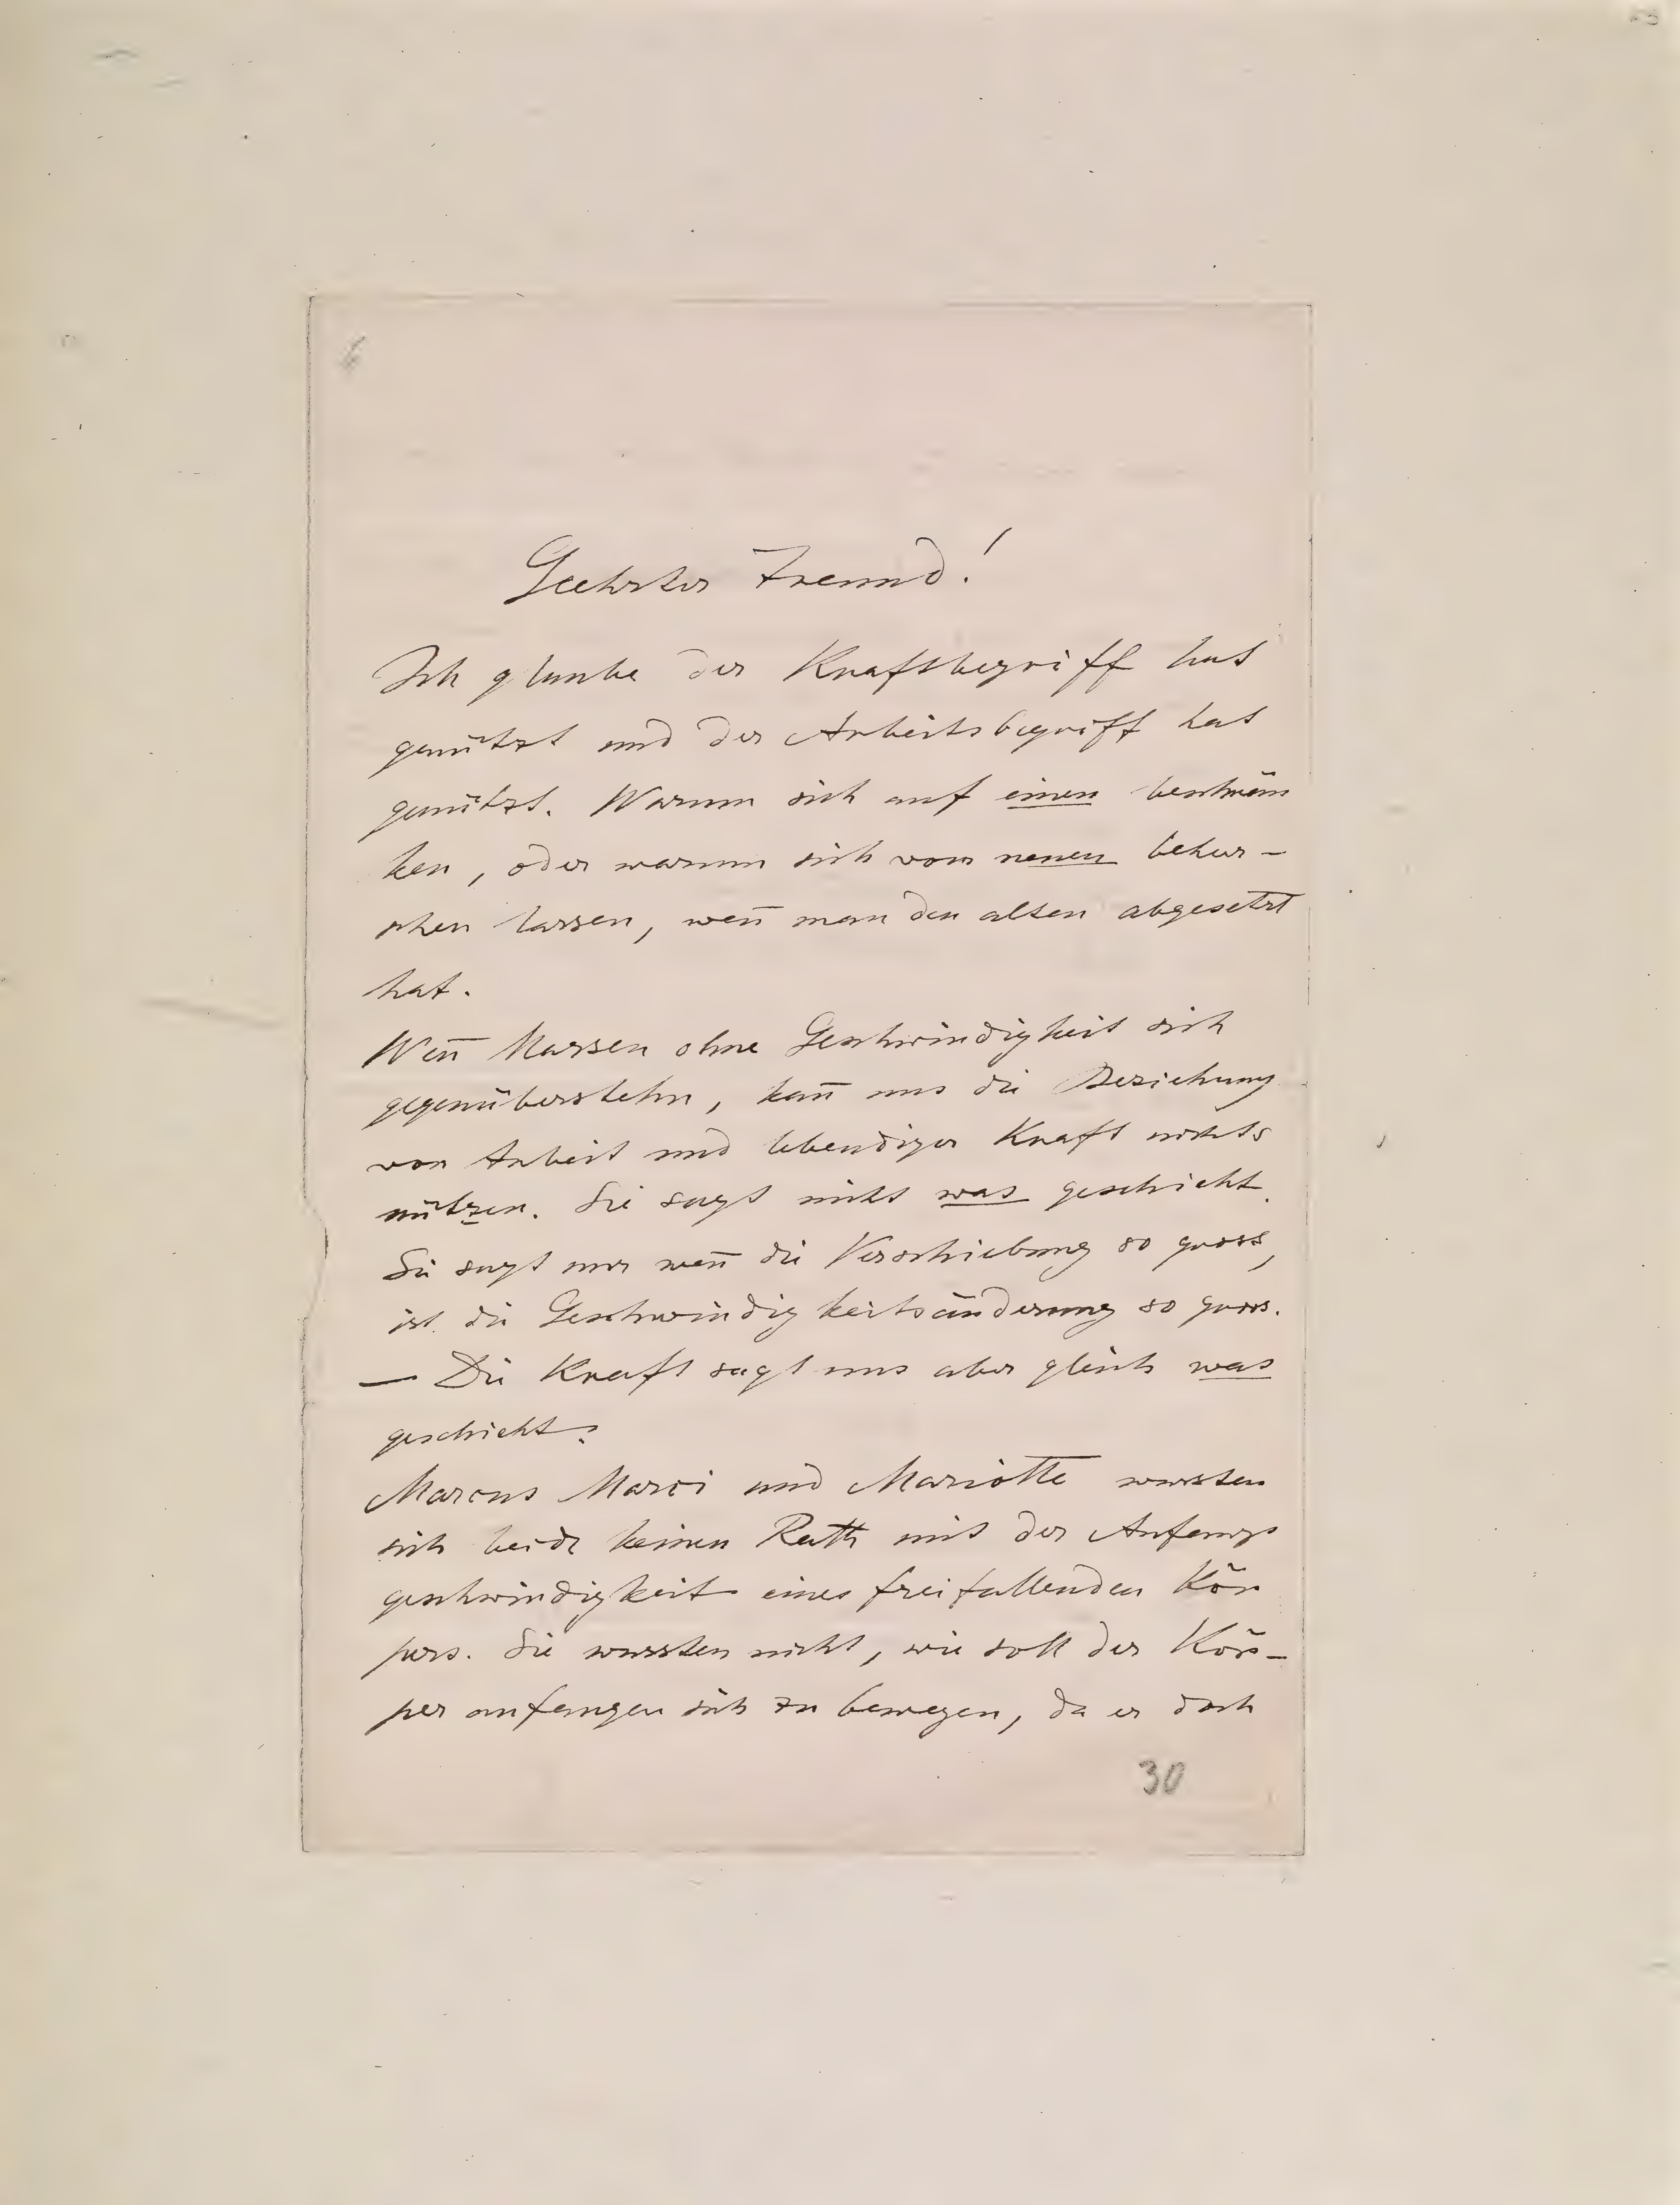 6
Geehrter Freund!
Ich glaube der Kraftbegriff hat
genützt und der Arbeitsbegriff hat
genützt. Warum sich auf einen beschrän
ken, oder warum sich vom neuen beherr-
schen lassen, weñ man den alten abgesetzt
hat.
Weñ Massen ohne Geschwindigkeit sich
gegenüberstehn, kañ uns die Beziehung
von Arbeit und lebendiger Kraft nichts
nützen. Sie sagt nicht was geschieht.
Sie sagt nur weñ die Verschiebung so gross,
ist die Geschwindigkeitsänderung so gross.
— Die Kraft sagt uns aber gleich was
geschieht.
Marcus Marci und Mariotte wussten
sich beide keinen Rath mit der Anfangs
geschwindigkeit eines freifallenden Kör
pers. Sie wussten nicht, wie soll der Kör-
per anfangen sich zu bewegen, da er doch
30